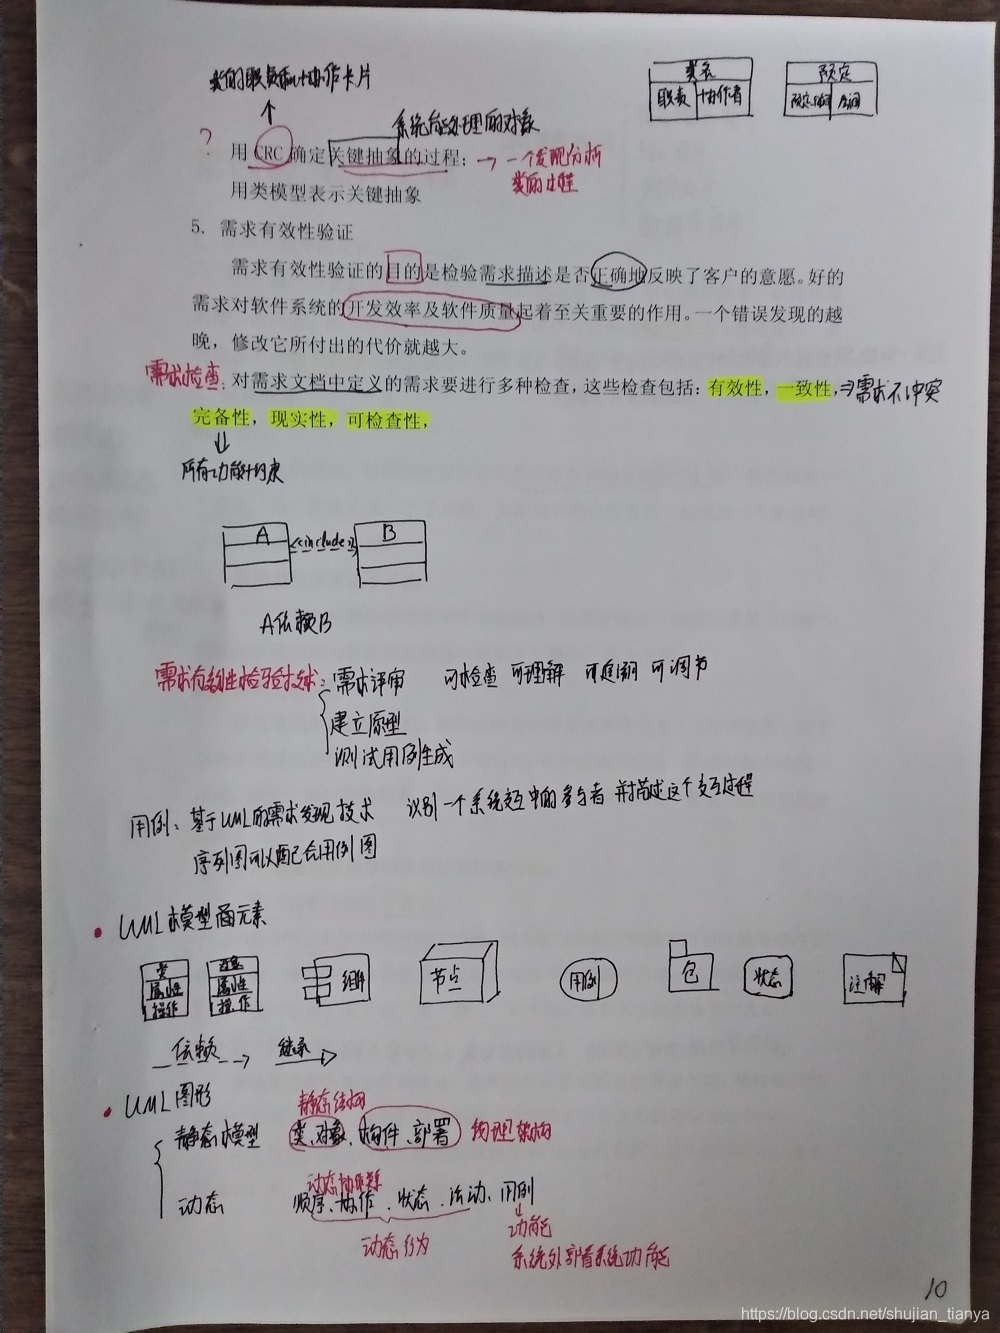 类的职责和协作卡片
类名
职责 协作者
预定
房间
系统能处理的对象
? 用CRC确定关键抽象的过程; → 一个发现分析
类的过程
用类模型表示关键抽象
5. 需求有效性验证
需求有效性验证的目的是检验需求描述是否正确地反映了客户的意愿。好的
需求对软件系统的开发效率及软件质量起着至关重要的作用。一个错误发现的越
晚，修改它所付出的代价就越大。
需求检查: 对需求文档中定义的需求要进行多种检查，这些检查包括：有效性，一致性，⇒需求不冲突
完备性，现实性，可检查性，
所有功能+约束
A <<include>> B
A依赖B
需求有效性检验技术: 需求评审 可检查 可理解 可追溯 可调节
建立原型
测试用例生成
用例: 基于UML的需求发现技术 识别一个系统交互中的参与者 并描述这个交互过程
序列图可以配合用例图
UML模型图元素
类 属性 操作
对象 属性 操作
组件 节点 用例 包 状态 注解
依赖 继承
UML图形
静态结构
静态模型 类、对象、构件、部署 物理架构
动态 顺序、协作、状态、活动、用例
功能
动态行为
系统外部看系统功能
10
https://blog.csdn.net/shujian_tianya